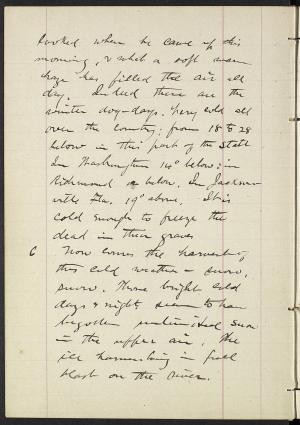 looked when he came up this
morning, & what a soft
haze has filled the air all
day. Indeed these are the
winter dog-days. Very cold all
over the country; from 18 to 28
below in this part of the State
In Washington 14° below; in
Richmond below. In Jackson-
ville Fla. 19° above. It is
cold enough to freeze the
dead in their graves
6 Now comes the harvest of
this cold weather - snow,
snow. Those bright cold
days & nights seem to have
begotten unlimited snow
in the upper air. The
ice harvesting in full
blast on the river.